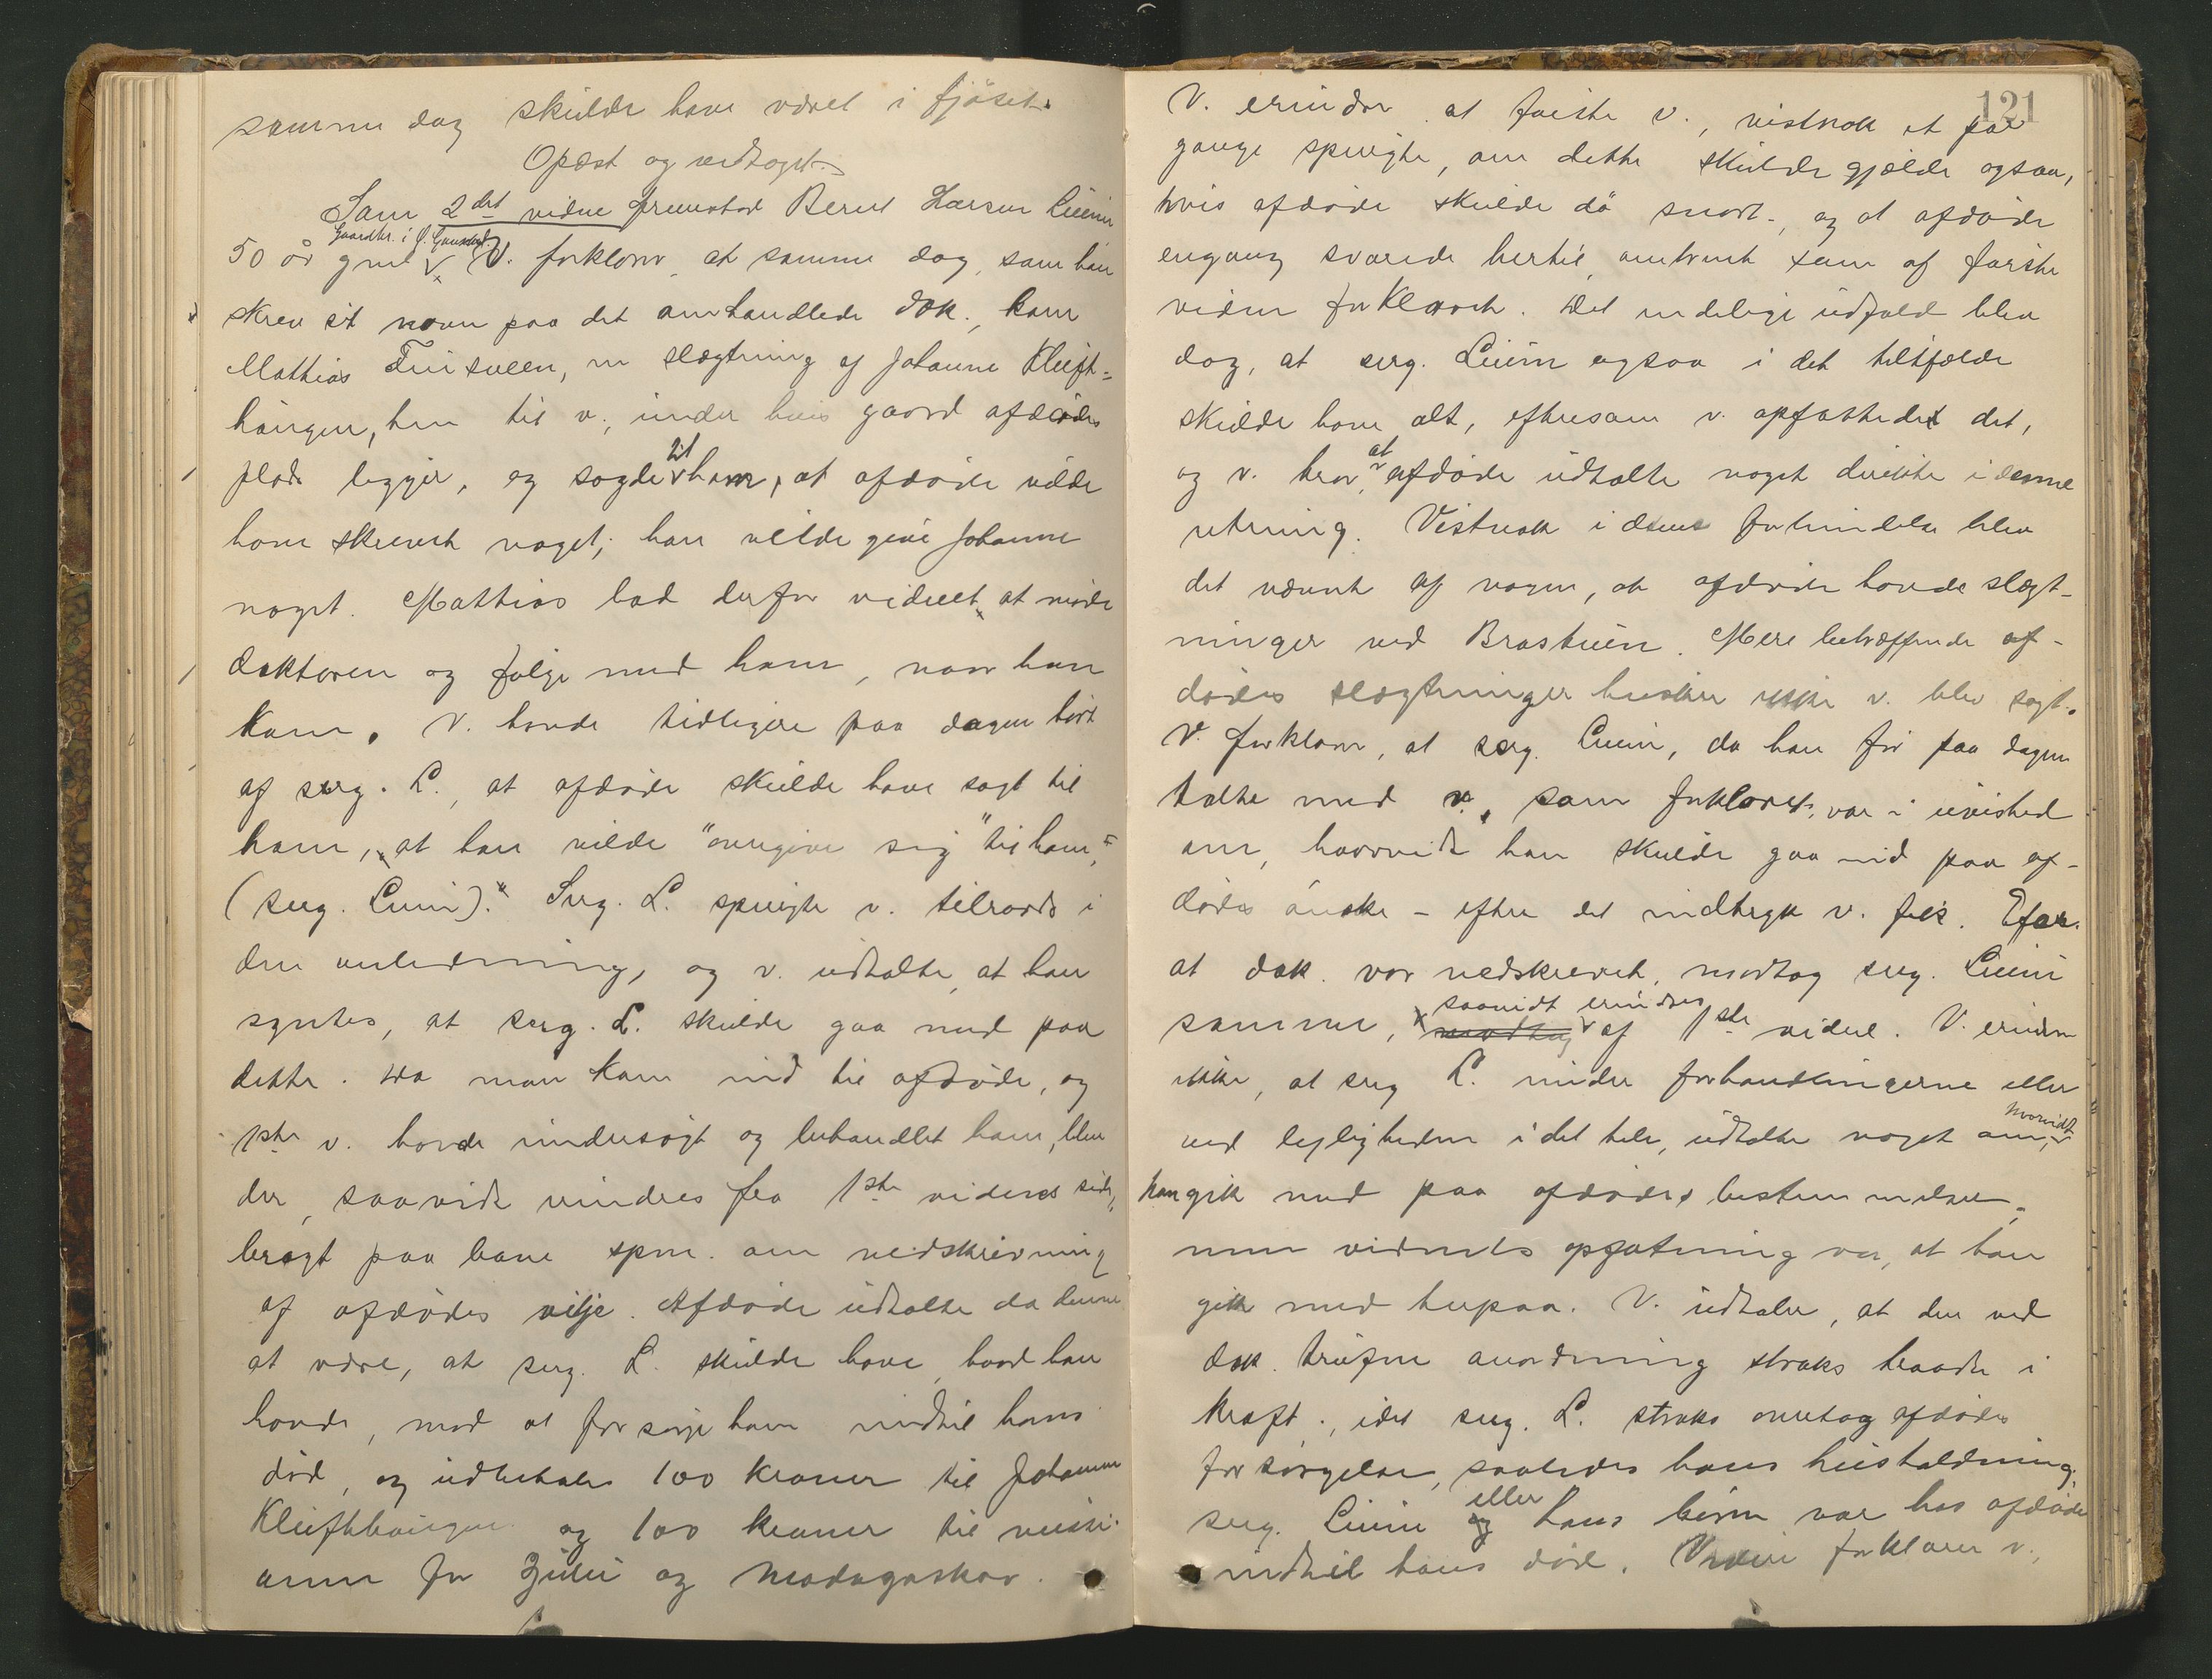 samme dag skulde have været i fjöset.
Oplæst og vedtaget.
Som 2det vidne fremstod Bernt Larsen Lium
Gaardbr. i Ö. Gausdal.
50 år gml v V. forklarer, at samme dag, som han
skrev sit navn paa det omhandlede dok., kom
Mathias Fuisveen, en slægtning af Johanne Kluft-
haugen, hen til v., under hvis gaard afdødes
plads ligger, og sagde til ham, at afdøde vilde
have skrevet noget; han vilde give Johanne
noget. Mathias bad derfor vidnet at möde
doktoren og følge med ham, naar han
kom. V. havde tidligere paa dagen hørt
af serg. L., at afdøde skulde have sagt til
ham, at han vilde "overgive sig" til ham,
(serg. Lium)." Serg. L. spurgte v. tilraads i
den anledning, og v. udtalte, at han
syntes, at serg. L. skulde gaa med paa
dette. Da man kom ned til afdøde, og
1ste v. havde undersøgt og behandlet ham, blev
der, saavidt erindres fra 1ste vidnes side,
bragt paa bane spm. om nedskrivning
af afdødes vilje. Afdøde udtalte da denne
at være, at serg. L. skulde have, hvad han
havde, mod at forsørge ham indtil hans
död, og udbetale 100 kroner til Johanne
Klufthaugen og 100 kroner til missi-
onen for Zulu og Madagaskar.
121
V. erindrer at første v., vistnok et par
gange spurgte, om dette skulde gjælde ogsaa,
hvis afdøde skulde dö snart, og at afdøde
engang svarede hertil, omtrent som af første
vidne forklaret. Det endelige udfald blev
dog, at serg. Lium ogsaa i det tilfælde
skulde have alt, eftersom v. opfattedet det,
og v. tror, at afdøde udtalte noget direkte i denne
retning. Vistnok i denne forbindelse blev
det nævnt af nogen, at afdøde havde slægt-
ninger ved Brastuen. Mere betræffende af-
dødes slægtninger husker ikke v. blev sagt.
V. forklarer, at serg. Lium, da han för paa dagen
talte med v., som forklaret, var i uvished
om, hvorvidt han skulde gaa ind paa af-
dødes önske - efter det indtryk v. fik. Efter
at dok. var nedskrevet, modtog serg. Lium
samme, modtog saavidt erindres af 1ste vidne. V. erindrer
ikke, at serg L. under forhandlingerne eller
ved leiligheden i det hele, udtalte noget om, hvorvidt
han gik med paa afdødes bestemmelser,
men vidnets opfatning var, at han
gik med herpaa. V. udtaler, at den ved
dok. trufne anordning straks traadte i
kraft, idet serg. L. straks overtog afdødes
forsørgelse, saaledes hans husholdning.
serg. Lium og eller hans börn var hos afdøde
indtil hans död. forklarer v.,